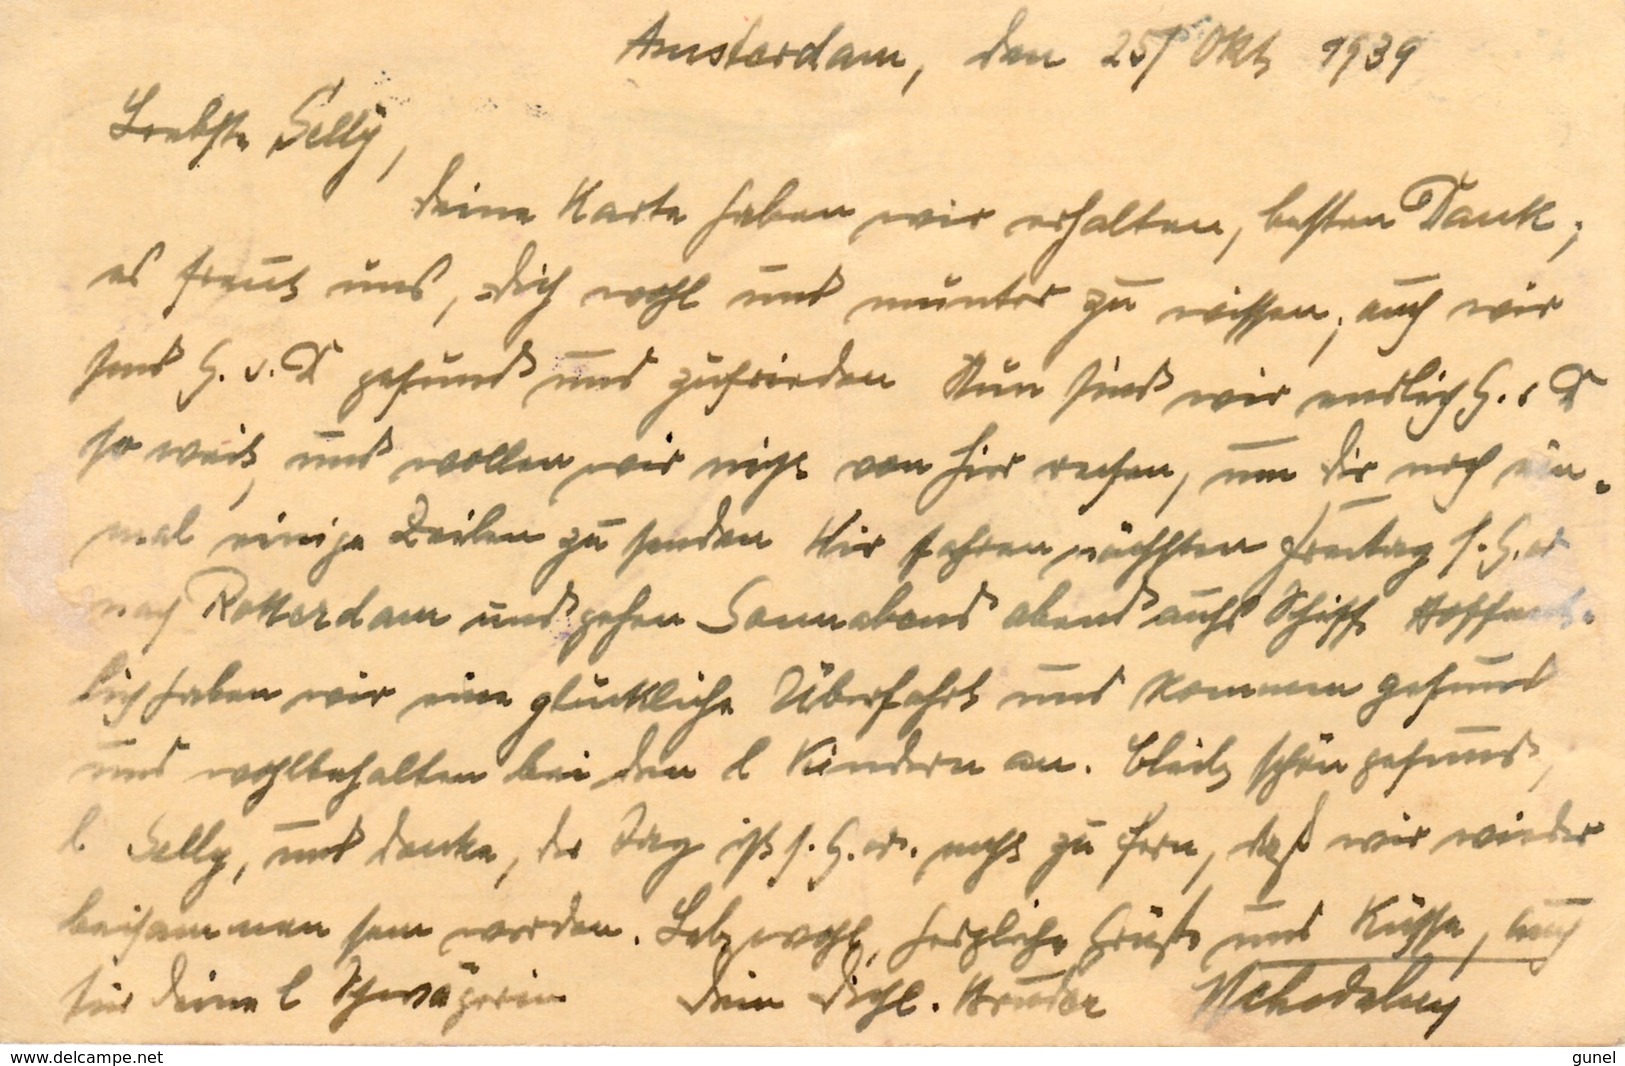 Amsterdam, den 25/ Okt 1939
Liebste Selly,
Deine Karte haben wir erhalten, besten Dank;
es freut uns, Dich wohl und munter zu wissen, auch wir
sind G. s. D gesund und zufrieden Nun sind wir endlich G. s D
so weit, und wollen wir nicht von hier reisen, um Dir noch ein-
mal einige Zeilen zu senden Wir fahren nächsten Freitag s. G. w
nach Rotterdam und gehen Sonnabend abend aufs Schiff Hoffent-
lich haben wir eine glückliche Überfahrt und kommen gesund
und wohlbehalten bei den l Kindern an. Bleib schön gesund,
l. Selly, und denke, der Tag ist s. G. w. nicht zu fern, daß wir wieder
beisammen sein werden. Leb wohl, herzliche Grüße und Küsse, auch
für Deine l Schwägerin Dein Dichl. Bruder
www.delcampe.net
gunel